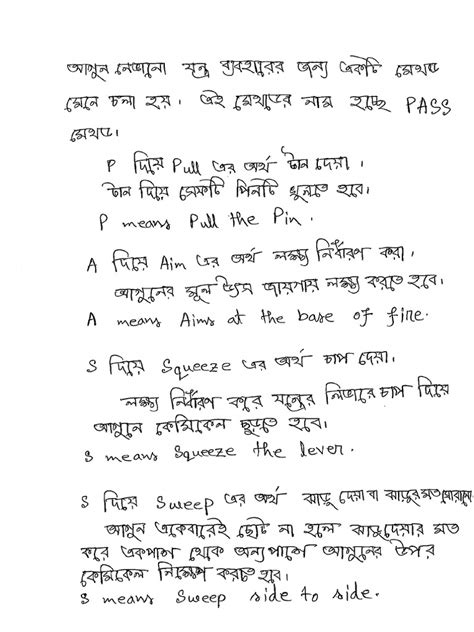 আগুন নেভানো যন্ত্র ব্যবহারের জন্য একটি মেথড
মেনে চলা হয়। এই মেথডের নাম হচ্ছে PASS
মেথড।
P দিয়ে Pull এর অর্থ টান দেয়া।
টান দিয়ে সেফটি পিনটি খুলতে হবে।
P means Pull the Pin.
A দিয়ে Aim এর অর্থ লক্ষ্য নির্ধারণ করা।
আগুনের মূল উৎস জায়গায় লক্ষ্য করতে হবে।
A means Aims at the base of fire.
S দিয়ে Squeeze এর অর্থ চাপ দেয়া।
লক্ষ্য নির্ধারণ করে যন্ত্রের লিভারে চাপ দিয়ে
আগুনে কেমিকেল ছুড়তে হবে।
S means Squeeze the lever.
S দিয়ে Sweep এর অর্থ ঝাড়ু দেয়া বা ঝাড়ুর মত ঘোরানো
আগুন একেবারেই ছোট না হলে ঝাড়ুদেয়ার মত
করে একপাশ থেকে অন্যপাশে আগুনের উপর
কেমিকেল নিক্ষেপ করতে হবে।
S means Sweep side to side.